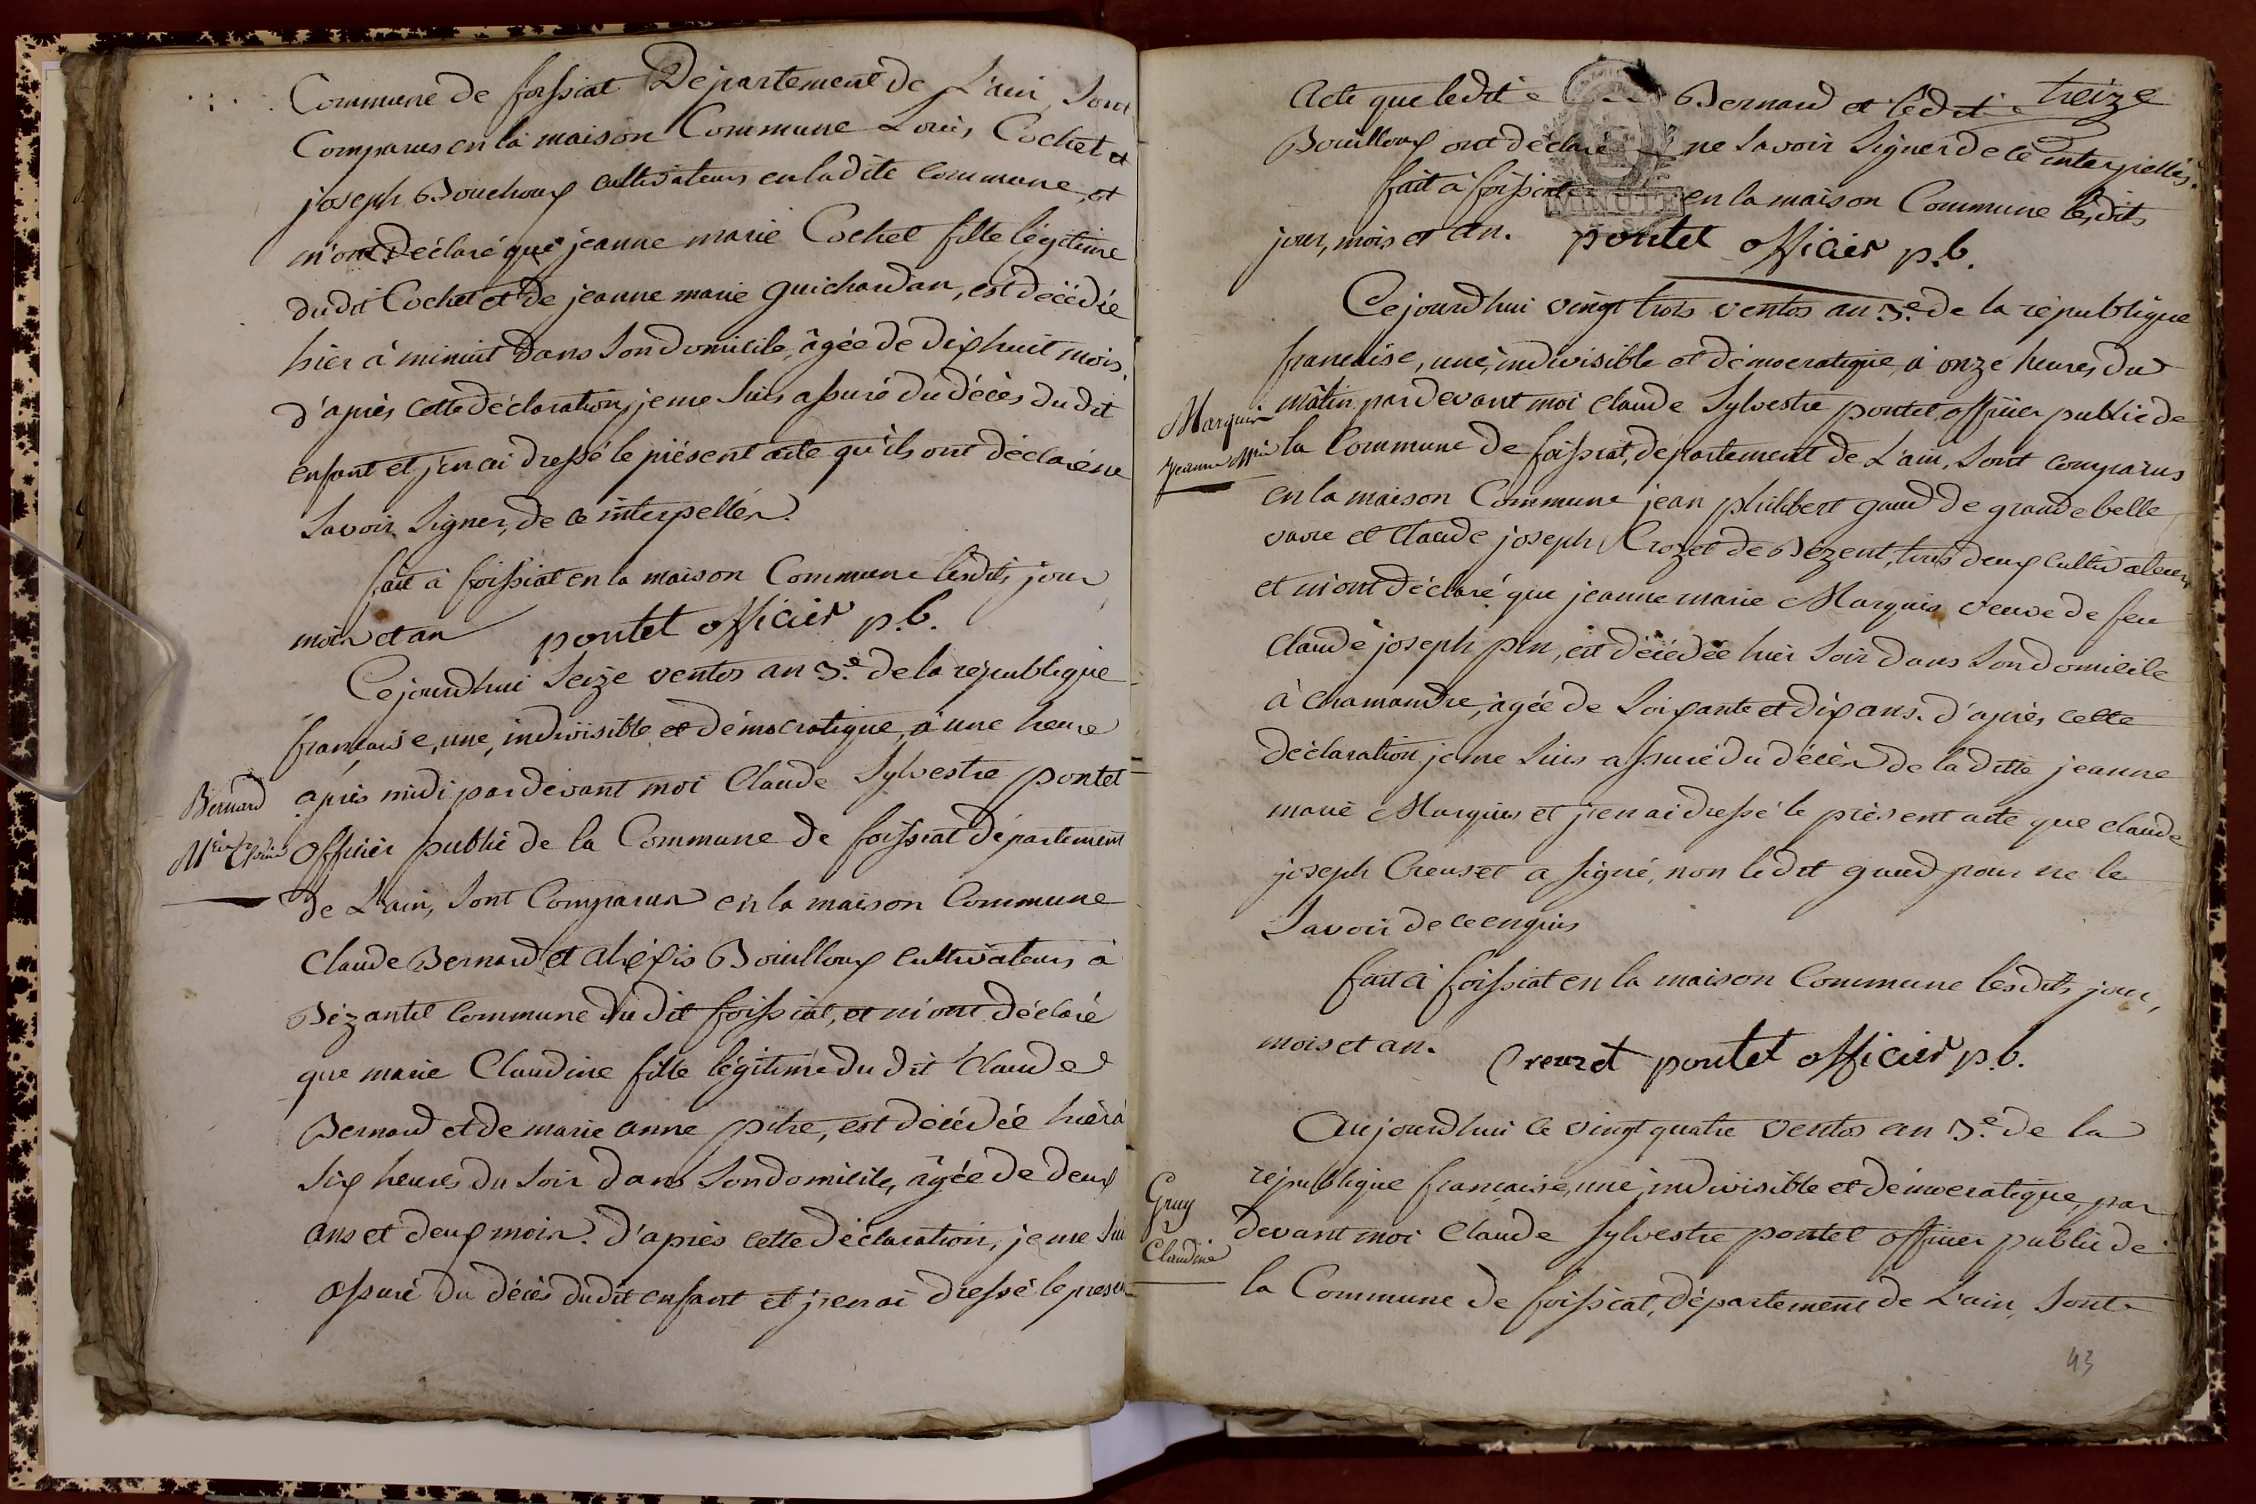 Commune de foissiat Département de L'ain, Sont
Comparus en la maison Commune Louis Cochet et
joseph Bouchoux cultivateurs en ladite commune, et
m'ont déclaré que jeanne marie Cochet fille légitime
dudit Cochet et de jeanne marie guichardan, est décédée
hier à minuit dans Son domicile, âgée de dix huit mois.
d'après cette déclaration, je me Suis assuré du décès dudit
enfant et j'en ai dressé le présent acte qu'ils ont déclaré ne
Savoir Signer, de ce interpellés.
fait à foissiat en la maison Commune lesdits jour
mois et an pontet officier p.b.
Cejourdhui Seize ventos an 3.e de la république
française, une, indivisible et démocratique, à une heure
Bernard
après midi par devant moi Claude Sylvestre pontet
Mie Claudine
officier public de la Commune de foissiat département
de L'ain, Sont Comparus en la maison Commune
Claude Bernard et alexis Bouilloux cultivateurs à
Bézantet commune dudit foissiat, et m'ont déclaré
que marie Claudine fille légitime du dit Claude
Bernard et de marie anne pitre, est décédée hier à
Six heures du Soir dans Son domicile, âgée de deux
ans et deux mois. d'après cette déclaration, je me Sui
assuré du décès dudit enfant et j'en ai dressé le presen
treize
Acte que ledit Bernard et ledit
Bouilloux ont déclaré ne Savoir Signer de ce interpellés.
fait à foissiat en la maison Commune lesdits
MINUTE
jour, mois et an. pontet officier p.b.
Cejourdhui vingt trois ventos an 3.e de la république
française, une, indivisible et démocratique, à onze heures du
Marquis
matin par devant moi Claude Sylvestre pontet officier public de
jeanne Mie
la Commune de foissiat, département de L'ain, Sont comparus
en la maison Commune jean philibert gaud de grande belle
vavre et Claude joseph Crozet de Bézent, tous deux cultivateurs
et m'ont déclaré que jeanne marie Marquis veuve de feu
Claude joseph pin, est décédée hier Soir dans Son domicile
à chamandre, âgée de Soixante et dix ans. d'après cette
déclaration je me Suis assuré du décès de la ditte jeanne
marie Marquis et j'en ai dressé le présent acte que claude
joseph Creuset a Signé, non ledit gaud pour ne le
Savoir de ce enquis
fait à foissiat en la maison Commune lesdits jour,
mois et an. Creuzet pontet officier p.b.
Aujourdhui le vingt quatre ventos an 3.e de la
république française, une, indivisible et démocratique, par
Gruy
devant moi Claude Sylvestre pontet officier public de
Claudine
la Commune de foissiat, département de L'ain, Sont
43